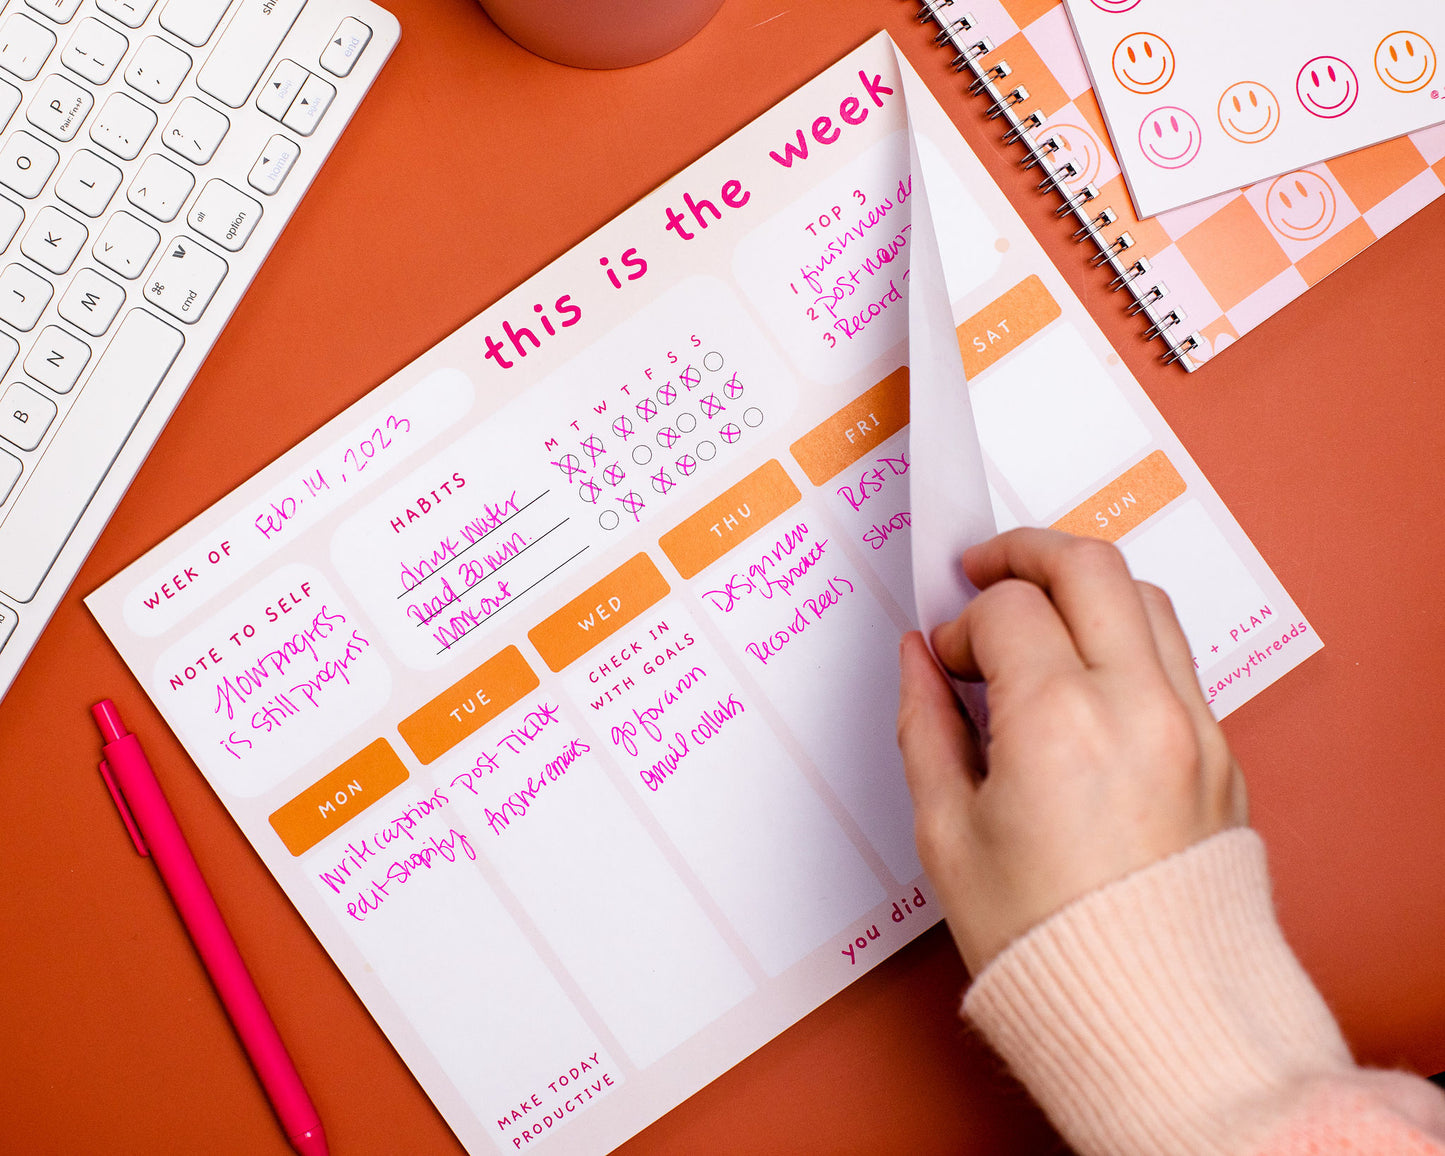 this is the week
WEEK OF Feb. 14, 2023
NOTE TO SELF
Slow progress
is still progress
HABITS
M T W T F S S
drink water
Read 30 min.
workout
TOP 3
1 finish new
2 post new
3 Record
MON
write captions
edit Shopify
MAKE TODAY
PRODUCTIVE
TUE
-post TikTok
Answer emails
WED
CHECK IN
WITH GOALS
go for a run
email collabs
THU
Design new
product
Record Reels
FRI
SAT
SUN
+ PLAN
_savvythreads
you did
shi
end
PgUp
PgDn
home
P
Pair: Fn+P
O
L
K
J
M
N
B
alt
option
cmd
{
[
"
'
:
;
?
/
>
.
<
,